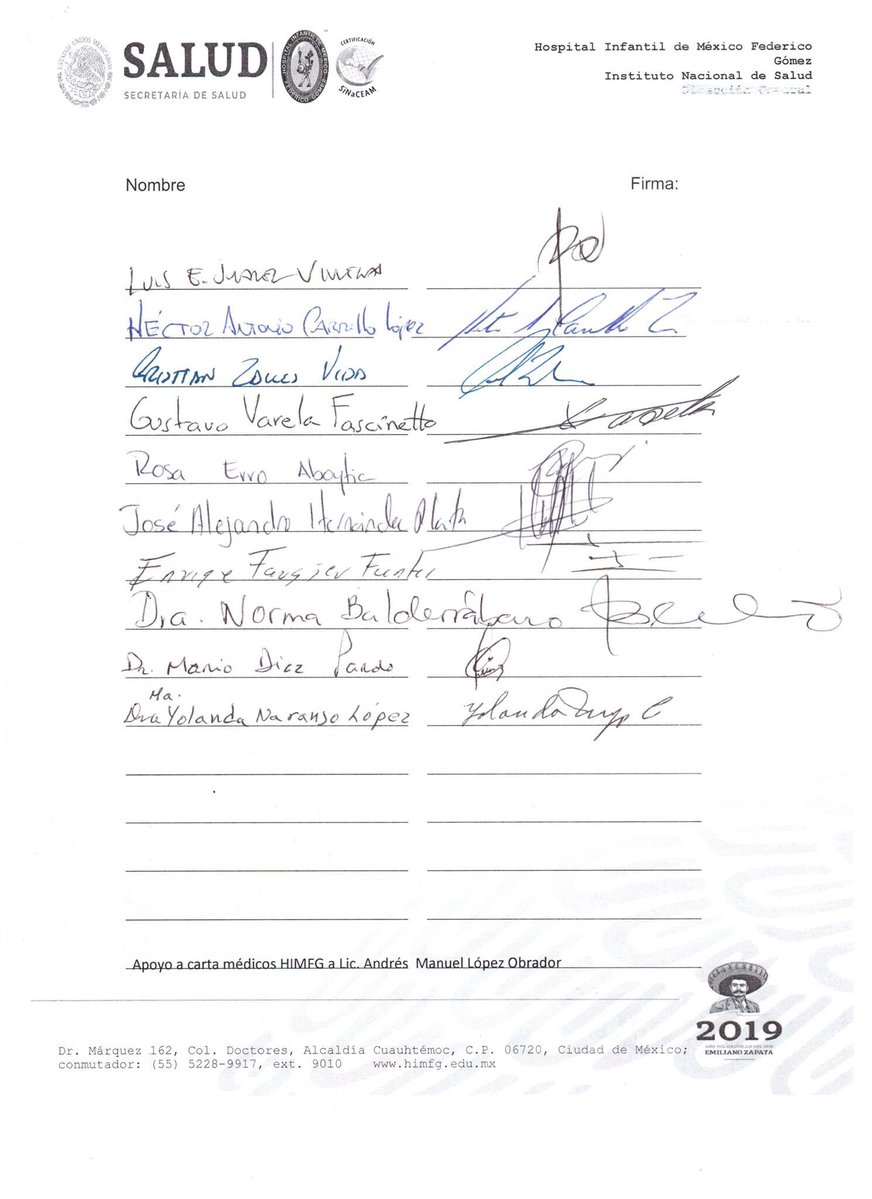 SALUD
SECRETARÍA DE SALUD
ESTADOS UNIDOS MEXICANOS
HOSPITAL INFANTIL DE MEXICO
FEDERICO GOMEZ
CERTIFICACIÓN
SiNaCEAM
Hospital Infantil de México Federico
Gómez
Instituto Nacional de Salud
Dirección General
Nombre Firma:
LUIS E.
HÉCTOR Antonio CARRILLO López
CRISTIAN
Gustavo Varela Fascinetto Varela
Rosa Erro
José Alejandro Hernández Plata
Enrique Fuentes
Dra. Norma Balderrábano
Dr. Mario Diaz Pardo
Ma.
Dra Yolanda Naranjo López Yolanda
Apoyo a carta médicos HIMFG a Lic. Andrés Manuel López Obrador
2019
AÑO DEL CAUDILLO DEL SUR
EMILIANO ZAPATA
Dr. Márquez 162, Col. Doctores, Alcaldía Cuauhtémoc, C.P. 06720, Ciudad de México;
conmutador: (55) 5228-9917, ext. 9010 www.himfg.edu.mx